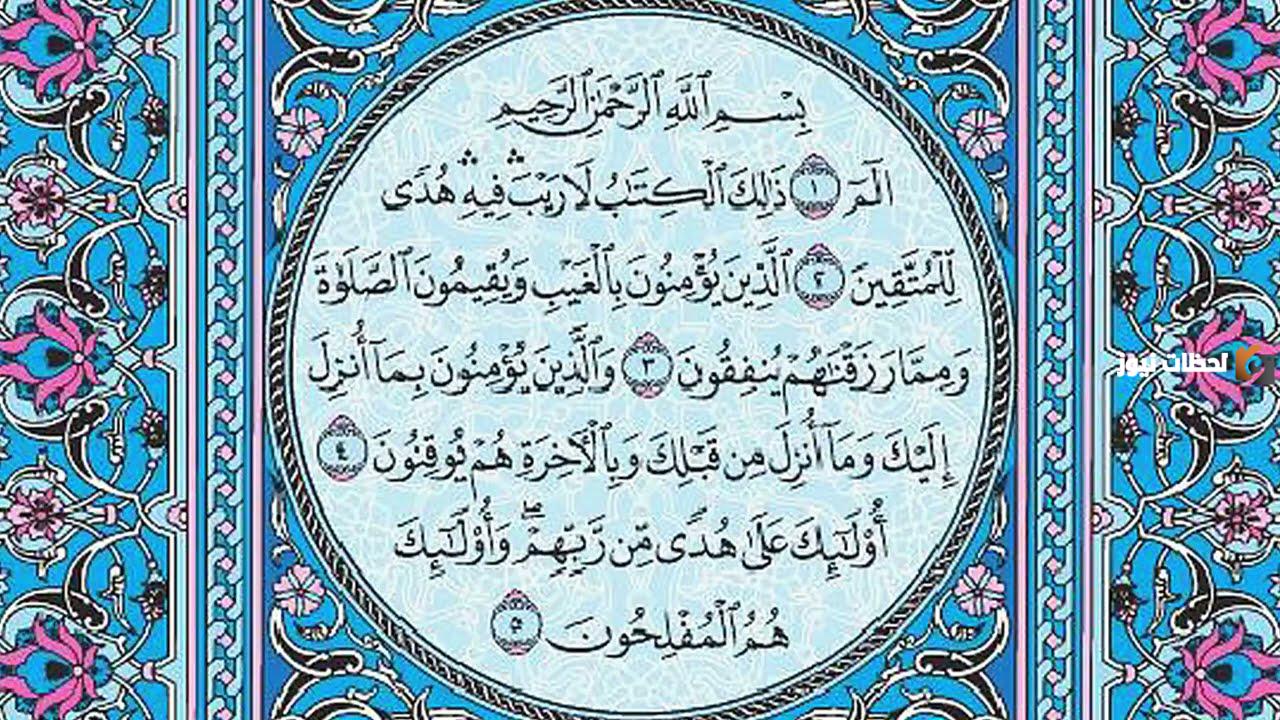 بِسْمِ ٱللَّهِ ٱلرَّحْمَٰنِ ٱلرَّحِيمِ
الٓمٓ ١ ذَٰلِكَ ٱلْكِتَٰبُ لَا رَيْبَ ۛ فِيهِ ۛ هُدًى
لِّلْمُتَّقِينَ ٢ ٱلَّذِينَ يُؤْمِنُونَ بِٱلْغَيْبِ وَيُقِيمُونَ ٱلصَّلَوٰةَ
وَمِمَّا رَزَقْنَٰهُمْ يُنفِقُونَ ٣ وَٱلَّذِينَ يُؤْمِنُونَ بِمَآ أُنزِلَ
إِلَيْكَ وَمَآ أُنزِلَ مِن قَبْلِكَ وَبِٱلْءَاخِرَةِ هُمْ يُوقِنُونَ ٤
أُو۟لَٰٓئِكَ عَلَىٰ هُدًى مِّن رَّبِّهِمْ ۖ وَأُو۟لَٰٓئِكَ
هُمُ ٱلْمُفْلِحُونَ ٥
لحظات نيوز